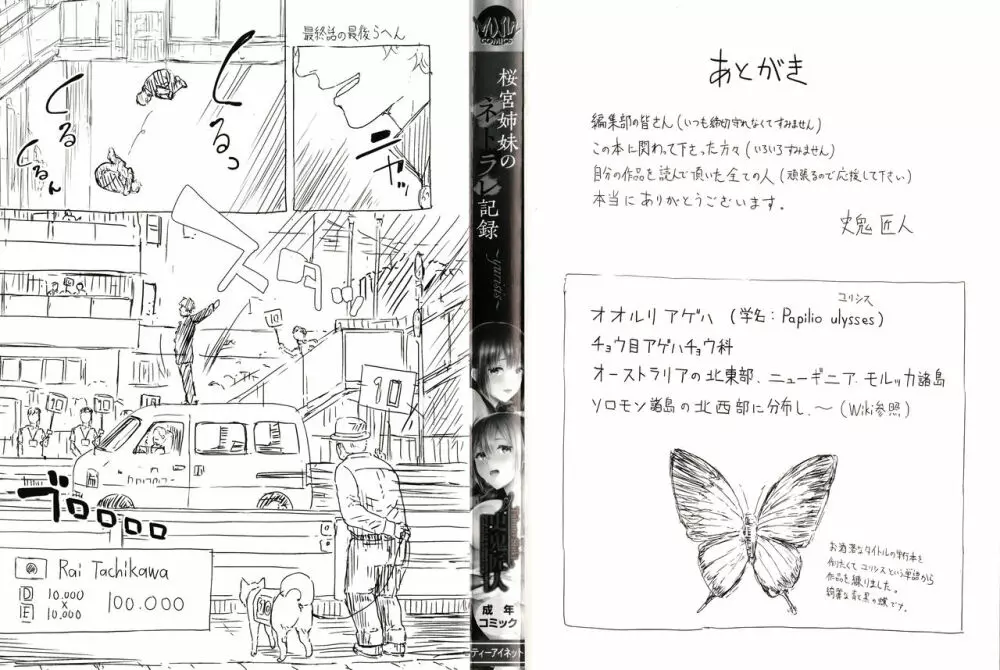 最終話の最後らへん
くるっ
くるるん
ニャッ
10
10
10
10
10
ブロロロロ
Rai Tachikawa
D 10.000
×
E 10.000
100.000
COMICS
桜宮姉妹の
ネトラレ記録
~yurisis~
成年
コミック
ティーアイネット
あとがき
編集部の皆さん(いつも締切守れなくてすみません)
この本に関わって下さった方々(いろいろすみません)
自分の作品を読んで頂いた全ての人(頑張るので応援して下さい)
本当にありがとうございます。
史鬼匠人
ユリシス
オオルリアゲハ (学名:Papilio ulysses)
チョウ目アゲハチョウ科
オーストラリアの北東部、ニューギニア、モルッカ諸島
ソロモン諸島の北西部に分布し、〜(Wiki参照)
お洒落なタイトルの単行本を
作りたくて ユリシスという単語から
作品を練りました。
綺麗な青と黒の蝶です。